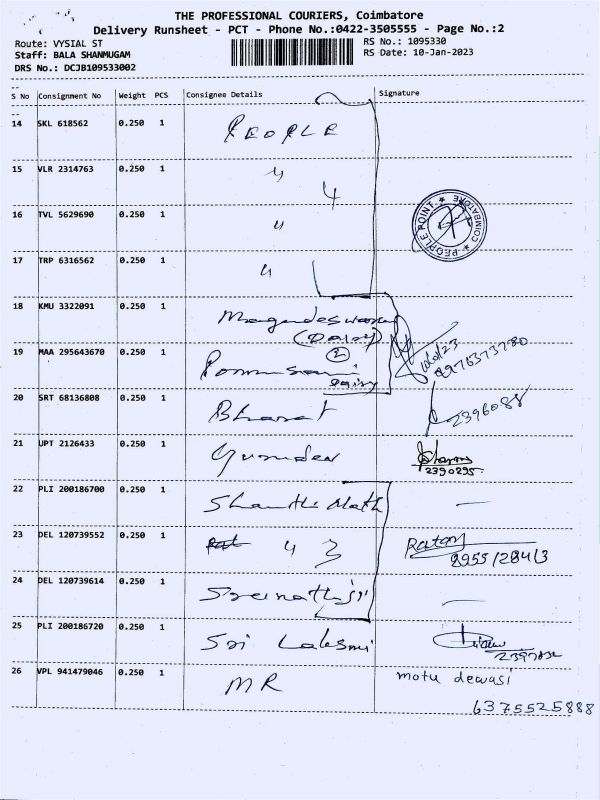 THE PROFESSIONAL COURIERS, Coimbatore
Delivery Runsheet - PCT - Phone No.:0422-3505555 - Page No.:2
Route: VYSIAL ST
RS No.: 1095330
Staff: BALA SHANMUGAM
RS Date: 10-Jan-2023
DRS No.: DCJB109533002
S No Consignment No Weight PCS Consignee Details Signature
14 SKL 618562 0.250 1 PEOPLE
15 VLR 2314763 0.250 1 "
4
16 TVL 5629690 0.250 1 "
PEOPLE POINT ★ COIMBATORE ★
17 TRP 6316562 0.250 1 "
18 KMU 3322091 0.250 1
(Dairy)
19 MAA 295643670 0.250 1
2
Dairy
20 SRT 68136808 0.250 1 Bharat 2396088
21 UPT 2126433 0.250 1
2390295
22 PLI 200186700 0.250 1 Shanthi Math —
23 DEL 120739552 0.250 1 " 3 Ratan
8955/284/3
24 DEL 120739614 0.250 1 Sreenathji —
25 PLI 200186720 0.250 1 Sri Laksmi
26 VPL 941479046 0.250 1 MR motu dewasi
6375525888